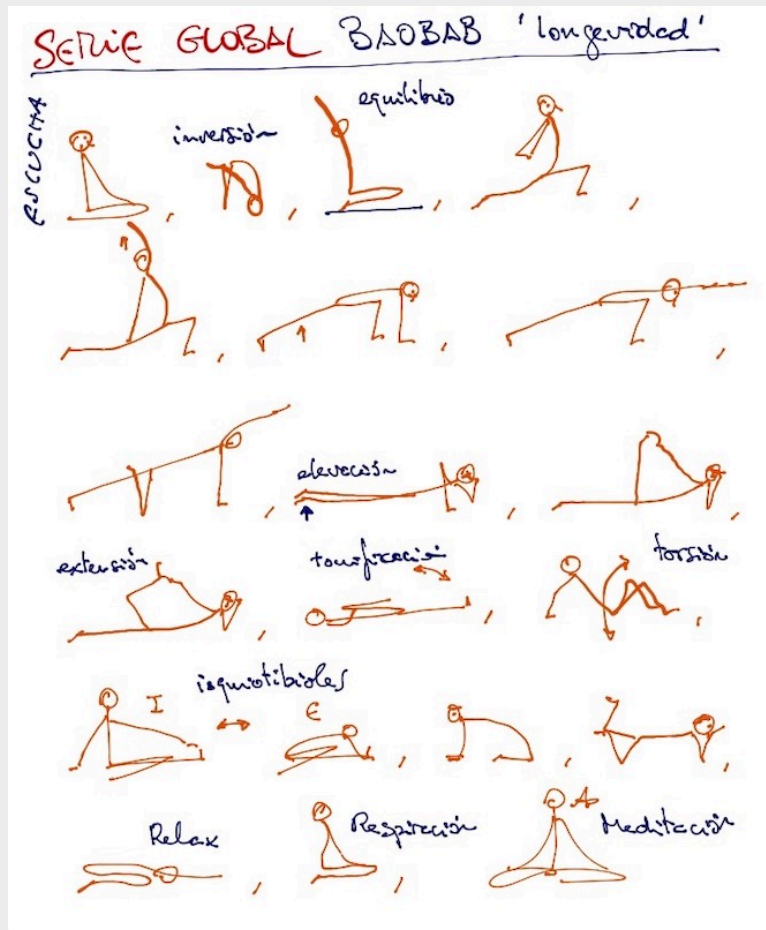 SERIE GLOBAL BAOBAB 'longevidad'
ESCUCHA
inversión
equilibrio
elevación
extensión
tonificación
torsión
isquiotibiales
I
E
Relax
Respiración
Meditación